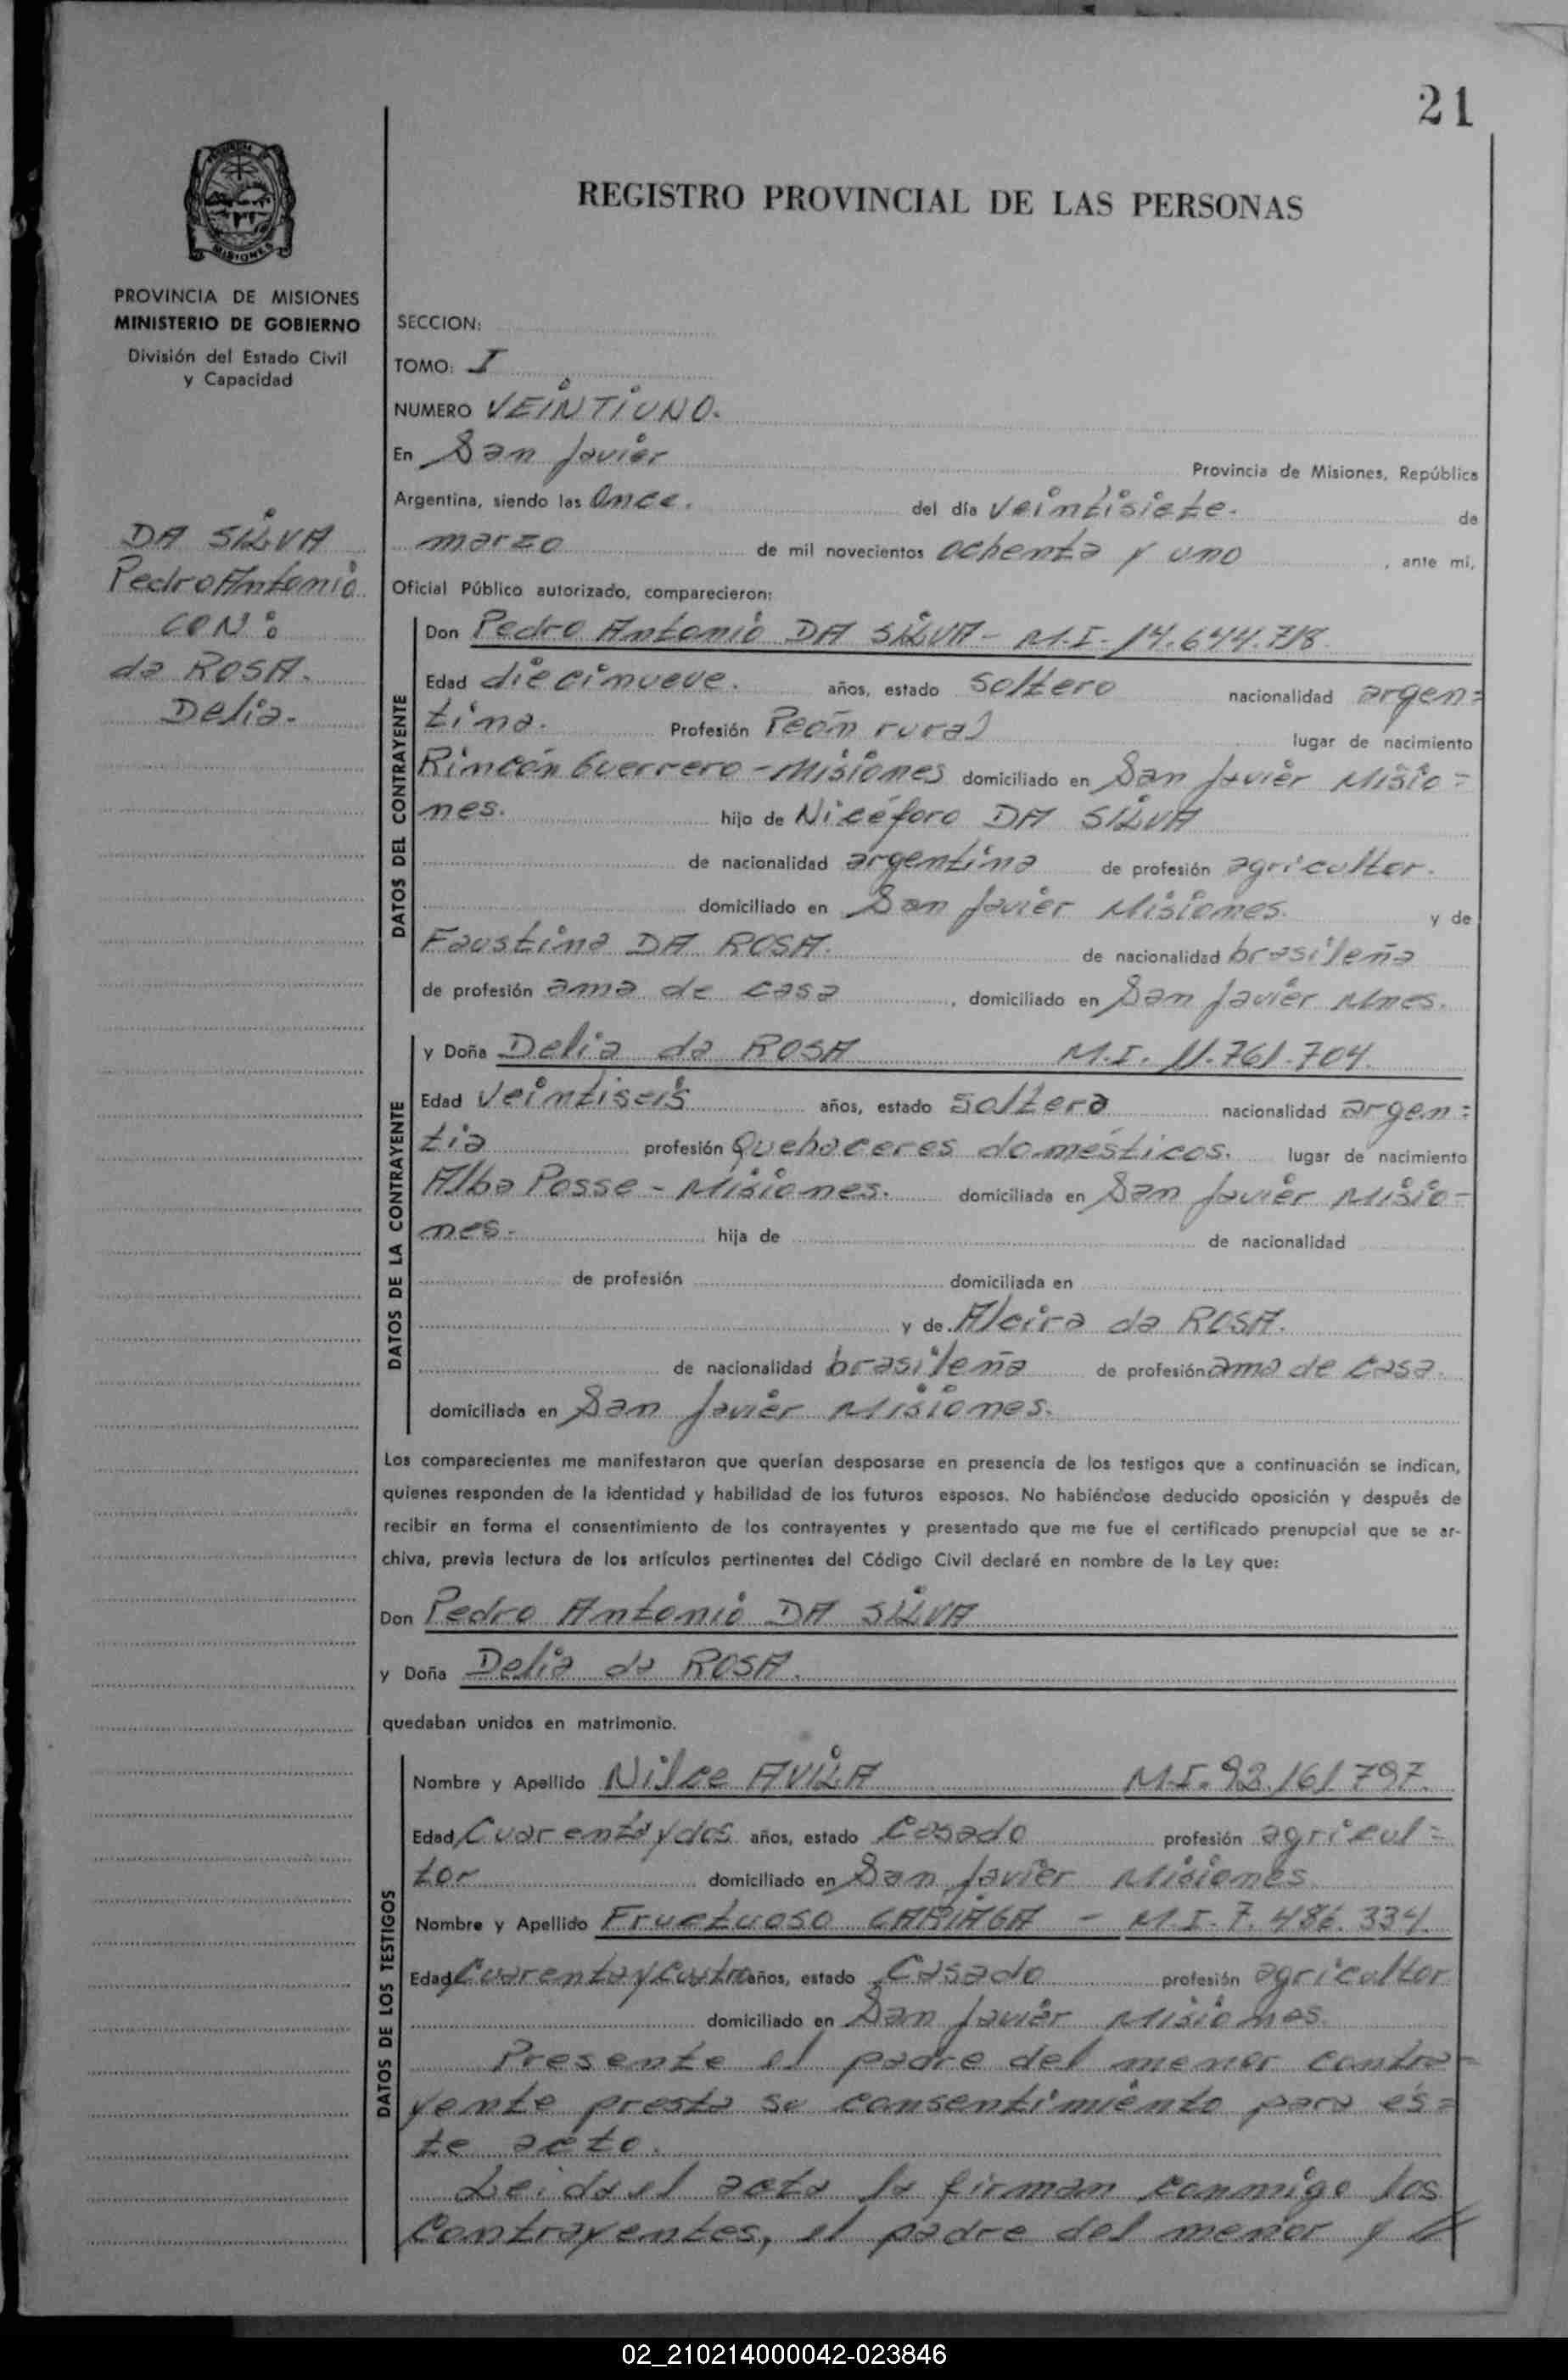 21
REGISTRO PROVINCIAL DE LAS PERSONAS
MISIONES
PROVINCIA DE MISIONES
MINISTERIO DE GOBIERNO
División del Estado Civil
y Capacidad
DA SILVA
Pedro Antonio
CON:
da ROSA.
Delia.
SECCION:
TOMO: I
NUMERO VEINTIUNO.
En San Javier Provincia de Misiones, República
Argentina, siendo las Once. del día veintisiete. de
marzo de mil novecientos ochenta y uno , ante mí,
Oficial Público autorizado, comparecieron:
DATOS DEL CONTRAYENTE
Don Pedro Antonio DA SILVA - M.I. 14.644.718
Edad diecinueve. años, estado soltero nacionalidad argen=
tina. Profesión Peón rural lugar de nacimiento
Rincón Guerrero - Misiones domiciliado en San Javier Misio=
nes. hijo de Nicéforo DA SILVA
de nacionalidad argentina de profesión agricultor.
domiciliado en San Javier Misiones. y de
Faustina DA ROSA. de nacionalidad brasileña
de profesión ama de casa , domiciliado en San Javier Mnes.
DATOS DE LA CONTRAYENTE
y Doña Delia da ROSA M.I. 11.761.704.
Edad Veintiseis años, estado soltera nacionalidad argen=
tia profesión Quehaceres domésticos. lugar de nacimiento
Alba Posse - Misiones. domiciliada en San Javier Misio-
nes. hija de de nacionalidad
de profesión domiciliada en
y de Alcira da ROSA.
de nacionalidad brasileña de profesión ama de casa.
domiciliada en San Javier Misiones.
Los comparecientes me manifestaron que querían desposarse en presencia de los testigos que a continuación se indican,
quienes responden de la identidad y habilidad de los futuros esposos. No habiéndose deducido oposición y después de
recibir en forma el consentimiento de los contrayentes y presentado que me fue el certificado prenupcial que se ar-
chiva, previa lectura de los artículos pertinentes del Código Civil declaré en nombre de la Ley que:
Don Pedro Antonio DA SILVA
y Doña Delia da ROSA.
quedaban unidos en matrimonio.
DATOS DE LOS TESTIGOS
Nombre y Apellido Nilce AVILA M.I. 92.161.797.
Edad Cuarenta y dos años, estado Casado profesión agricul=
tor domiciliado en San Javier Misiones
Nombre y Apellido Fructuoso CARIAGA - M.I. 7.486.334
Edad Cuarenta y cuatro años, estado Casado profesión agricultor
domiciliado en San Javier Misiones.
Presente el padre del menor contra=
yente presta su consentimiento para és=
te acto.
Leida el acta la firman conmigo los
Contrayentes, el padre del menor y
02_210214000042-023846